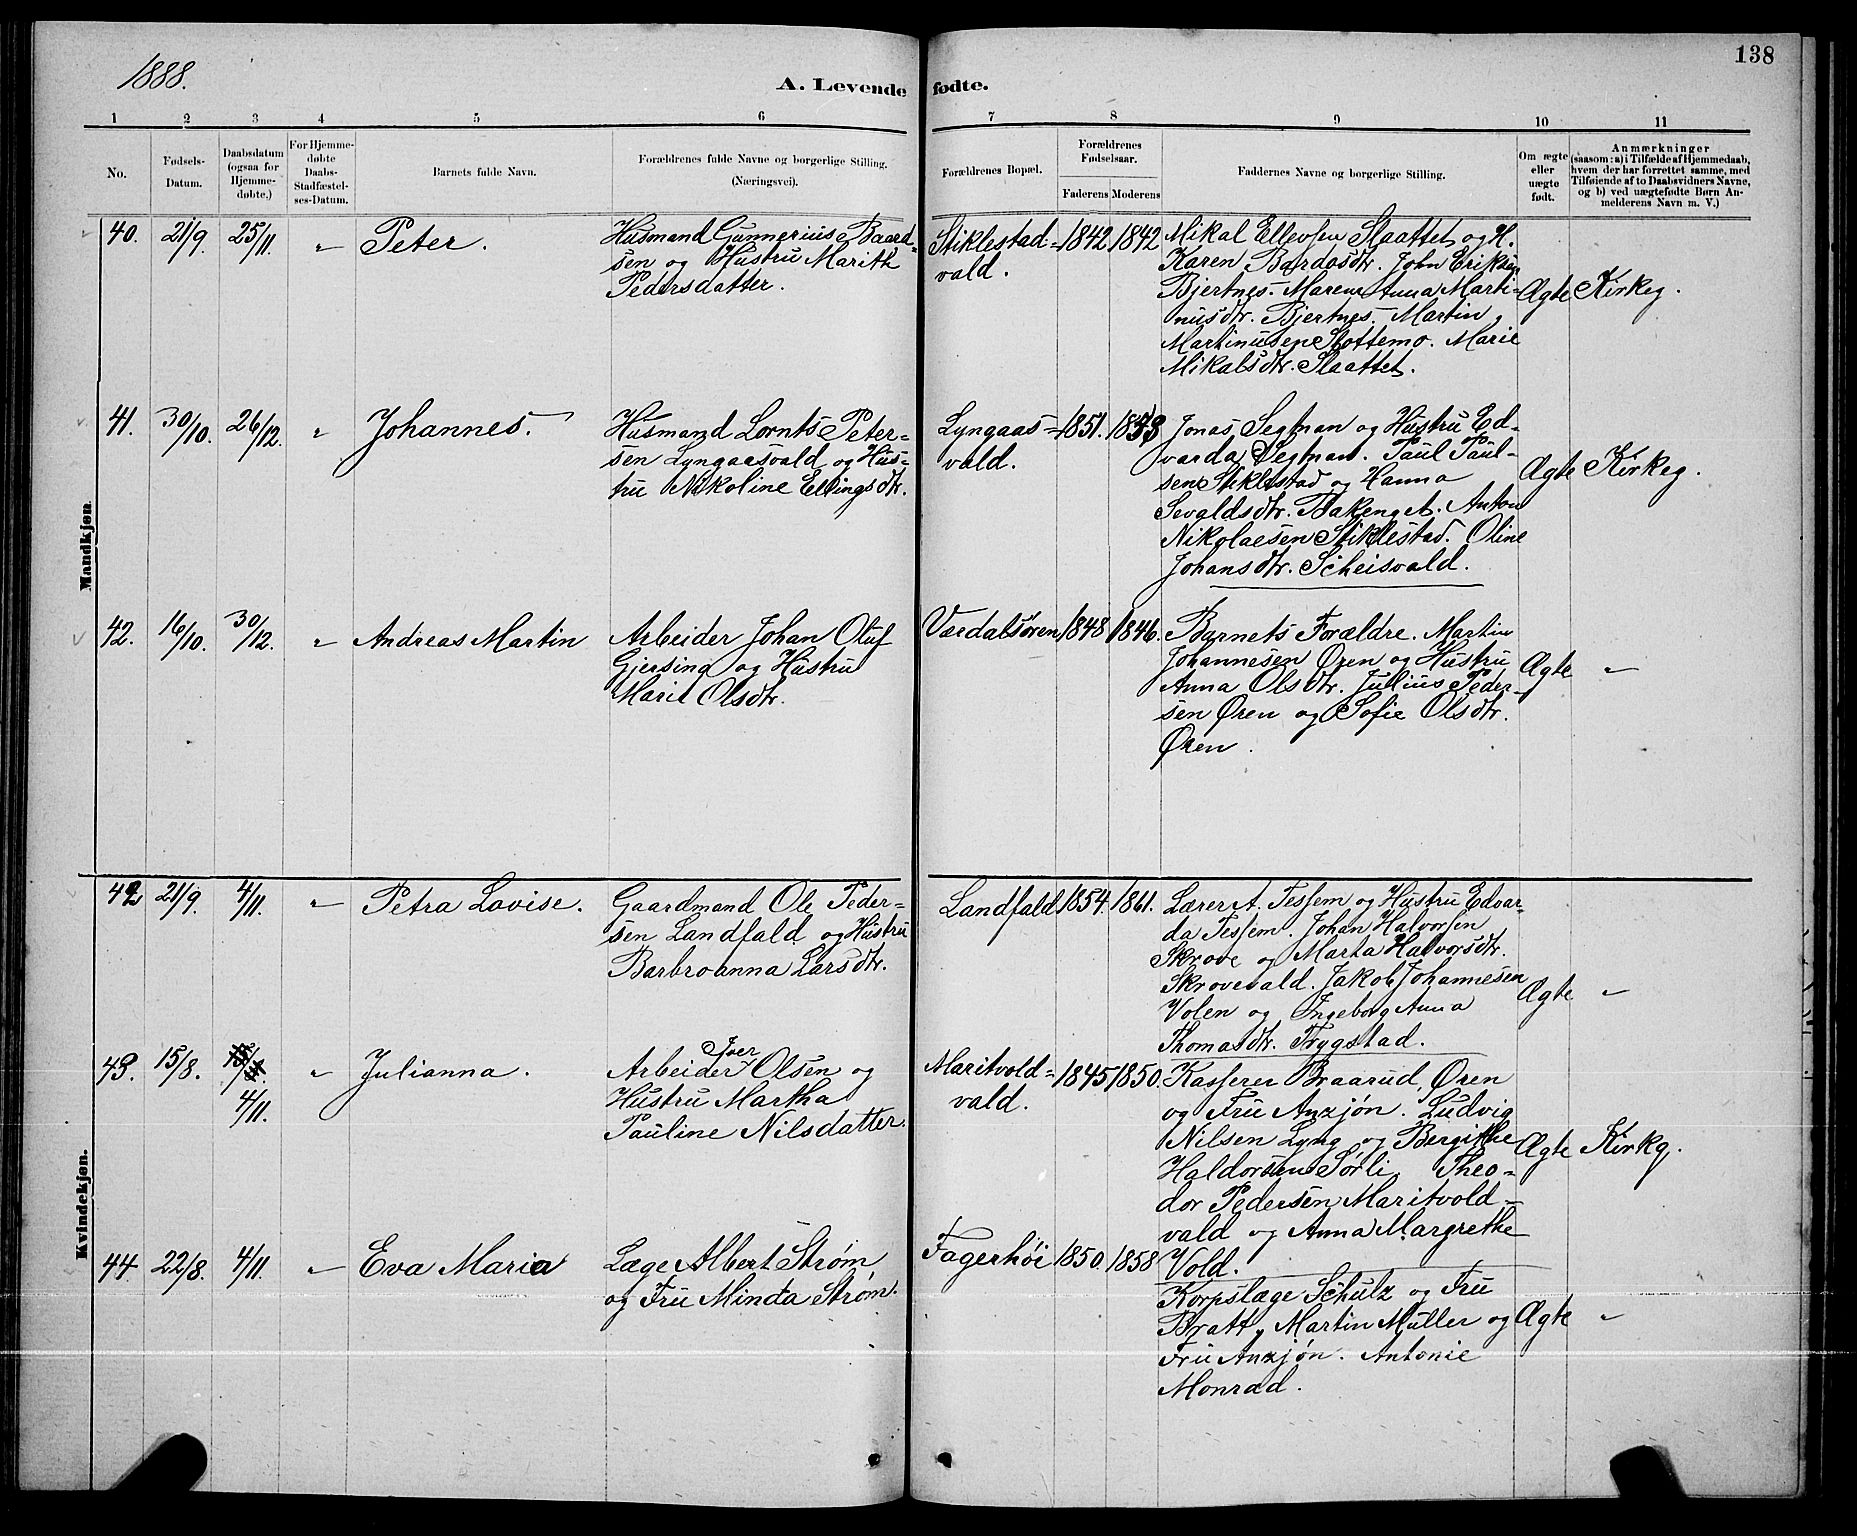 1888.
A. Levende fødte.
138
1 2 3 4 5 6 7 8 9 10 11
No.
Fødsels-
Datum.
Daabsdatum
(ogsaa for
Hjemme-
døbte.)
For Hjemme-
døbte
Daabs-
Stadfæstel-
ses-Datum.
Barnets fulde Navn.
Forældrenes fulde Navne og borgerlige Stilling.
(Næringsvei).
Forældrenes Bopæl.
Forældrenes
Fødselsaar.
Faderens
Moderens
Faddernes Navne og borgerlige Stilling.
Om ægte
eller
uægte
født.
Anmærkninger
(saasom: a) i Tilfælde af Hjemmedaab,
hvem der har forrettet samme, med
Tilføiende af to Daabsvidners Navne,
og b) ved uægtefødte Børn An-
melderens Navn m. V.)
Mandkjøn.
40. 21/9 25/11 " Peter.
Husmand Gunnerius Baard-
sen og Hustru Marith
Pedersdatter.
Stiklestad-
vald.
1842 1842
Mikal Ellevsen Slaattet og H.
Karen Bardosdtr. John Eriksen
Bjertnes. Maren Anna Marti-
nusdtr. Bjertnes. Martin
Martinusen Slottemo. Marie
Mikalsdtr. Slaattet.
Ægte Kirkeg.
41. 30/10. 26/12. " Johannes.
Husmand Lornts Peter-
sen Lyngaasvald og Hus-
tru Nikoline Ellingsdtr.
Lyngaas-
vald.
1851. 1853
Jonas Segtnan og Hustru Ed-
varda Segtnan. Paul Paul-
sen Stiklestad og Hanna
Sevaldsdtr. Bakenget. Anton
Nikolaesen Stiklestad. Oline
Johansdtr. Scheisvald.
Ægte Kirkeg.
42. 16/10. 30/12. " Andreas Martin
Arbeider Johan Oluf
Gjersing og Hustru
Marit Olsdtr.
Værdalsören
1848 1846.
Barnets Forældre. Martin
Johannesen Øren og Hustru
Anna Olsdtr. Julius Peder-
sen Øren og Sofie Olsdtr.
Øren.
Ægte "
Kvindekjøn.
42 21/9. 4/11. " Petra Lovise.
Gaardmand Ole Peder-
sen Landfald og Hustru
Barbroanna Larsdtr.
Landfald
1854. 1861.
Lærer A. Tessem og Hustru Edvar-
da Tessem. Johan Halvorsen
Skrove og Marta Halvorsdtr.
Skrovevald. Jakob Johannesen
Volen og Ingeborg Anna
Thomasdtr. Trygstad.
Ægte "
43. 15/8. 4/11. " Julianna.
Arbeider Iver Olsen og
Hustru Martha
Pauline Nilsdatter.
Maritvold-
vald.
1845 1850.
Kasserer Braarud, Øren
og Fru Anzjøn. Ludvig
Nilsen Lyng og Bergithe
Haldorsen Sørli. Theo-
dor Pedersen Maritvold-
vald og Anna Margrethe
Vold.
Ægte Kirkg.
44. 22/8. 4/11. " Eva Maria
Læge Albert Strøm
og Fru Minda Strøm.
Fagerhöi
1850. 1858
Korpslæge Schulz og Fru
Bratt, Martin Müller og
Fru Anzjøn. Antonie
Monrad.
Ægte "